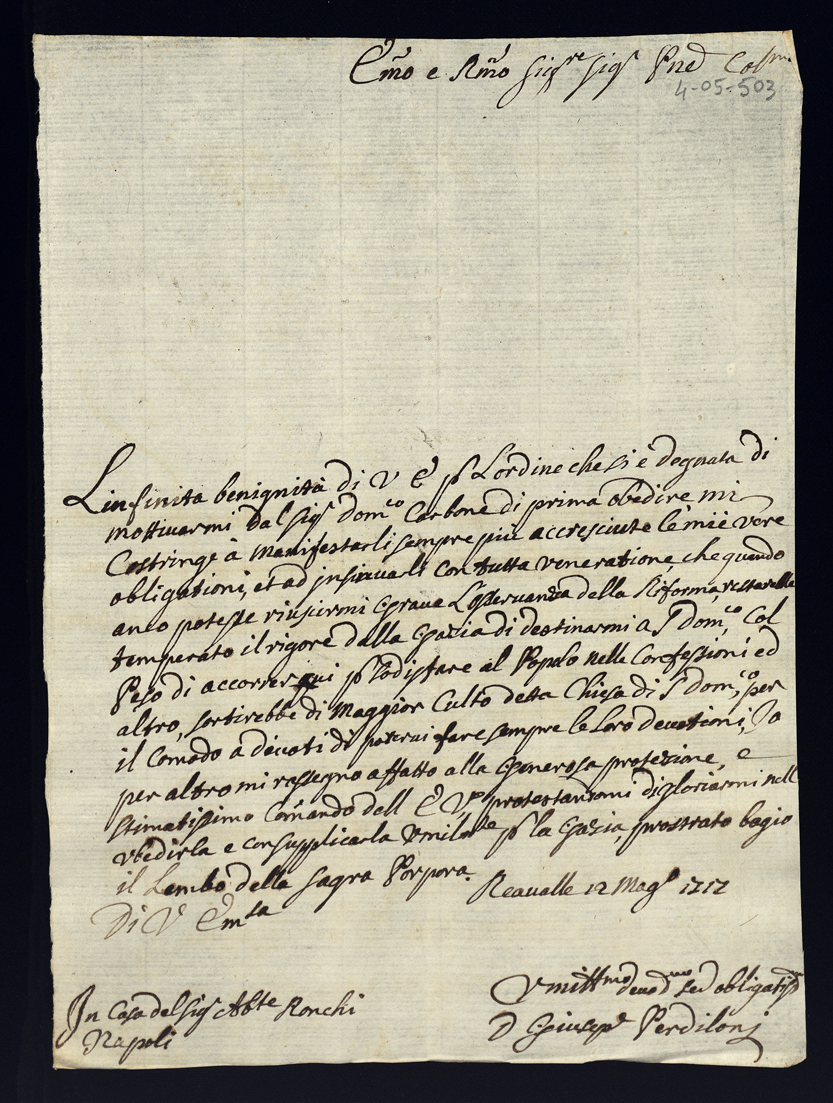 Em̃o e Rm̃o Sig.re Sig.r Pnẽ Col.mo
4-05-503
L'infinita benignità di V E p L'ordine che si è degnata di
mottivarmi dal Sig.r Dom.co Carbone di prima obedire mi
Costringe à Manifestarli sempre più accresciute le mie vere
obligationi, et ad insinuarli con tutta veneratione, che quando
anco potesse riuscirmi grave L'osservanza della Riforma, restarebbe
temperato il rigore dalla Grazia di destinarmi a S Dom.co Col
Peso di accorrer qui p sodisfare al Popolo nelle Confessioni ed
altro, sortirebbe di Maggior Culto detta Chiesa di S Dom.co, per
il Comodo a devoti di potervi fare sempre le Loro devotioni, Io
per altro mi rassegno affatto alla Generosa protezione, e
stimatissimo Com̃ando dell E V, protestandomi di gloriarmi nell
vbedirla e con supplicarla vmilm.te p la Grazia, prostrato bagio
il Lembo della Sagra Porpora.
Reavalle 12 Mag.o 1717
Di V Em.za
In Casa del Sig.r Ab.te Ronchi
Napoli
Vmilt.mo devo.mo ser obligatis.mo
D Giusep.e Perdiloni